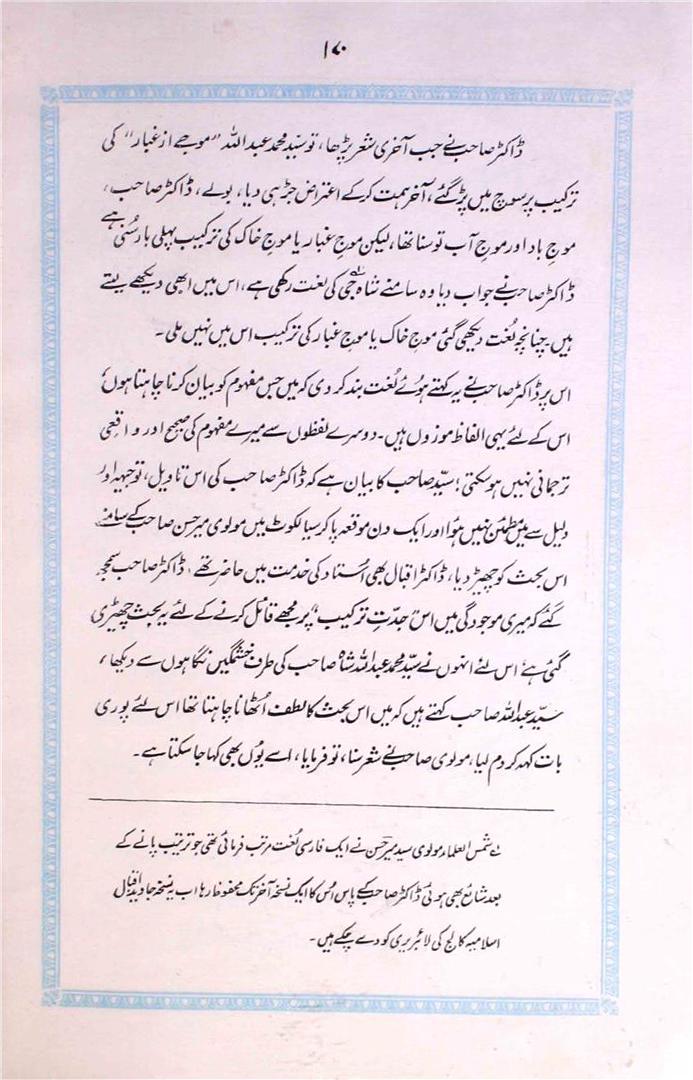 ۱۷۰
ڈاکٹر صاحب نے جب آخری شعر پڑھا، تو سیّد محمد عبد اللہ "موجے از غبار" کی
ترکیب پر سوچ میں پڑ گئے، آخر ہمت کر کے اعتراض جڑ ہی دیا، بولے، ڈاکٹر صاحب،
موجِ باد اور موجِ آب تو سنا تھا، لیکن موجِ غبار یا موجِ خاک کی ترکیب پہلی بار سُنی ہے
ڈاکٹر صاحب نے جواب دیا وہ سامنے شاہ جی کی لغت رکھی ہے، اس میں ابھی دیکھے لیتے
ہیں۔ چنانچہ لُغت دیکھی گئی موجِ خاک یا موجِ غبار کی ترکیب اس میں نہیں ملی۔
اس پر ڈاکٹر صاحب نے یہ کہتے ہوئے لُغت بند کر دی کہ میں جس مفہوم کو بیان کرنا چاہتا ہوں
اس کے لئے یہی الفاظ موزوں ہیں۔ دوسرے لفظوں سے میرے مفہوم کی صحیح اور واقعی
ترجمانی نہیں ہو سکتی! سیّد صاحب کا بیان ہے کہ ڈاکٹر صاحب کی اس تاویل، توجیہہ اور
دلیل سے میں مطمئن نہیں ہوا اور ایک دن موقعہ پا کر سیالکوٹ میں مولوی میر حسن صاحب کے سامنے
اس بحث کو چھیڑ دیا، ڈاکٹر اقبال بھی اُستاد کی خدمت میں حاضر تھے، ڈاکٹر صاحب سمجھ
گئے کہ میری موجودگی میں اس "جدّتِ ترکیب" پر مجھے قائل کرنے کے لئے یہ بحث چھیڑی
گئی ہے، اس لئے انہوں نے سیّد محمد عبد اللہ شاہ صاحب کی طرف خشمگیں نگاہوں سے دیکھا،
سیّد عبد اللہ صاحب کہتے ہیں کہ میں اس بحث کا لطف اُٹھانا چاہتا تھا اس لئے پوری
بات کہہ کر دم لیا، مولوی صاحب نے شعر سنا، تو فرمایا، اسے یوں بھی کہا جا سکتا ہے۔
لے شمس العلماء مولوی سید میر حسن نے ایک فارسی لُغت مرتب فرمائی تھی جو ترتیب پانے کے
بعد شائع بھی ہوئی ڈاکٹر صاحب کے پاس اُس کا ایک نسخہ آخر تک محفوظ رہا اب یہ نسخہ جاوید اقبال
اسلامیہ کالج کی لائبریری کو دے چکے ہیں۔